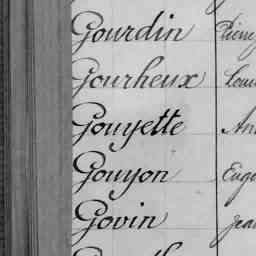 Gourdin Pierre
Gourheux Loui
Gouyette An
Gouyon Eug
Govin Jea